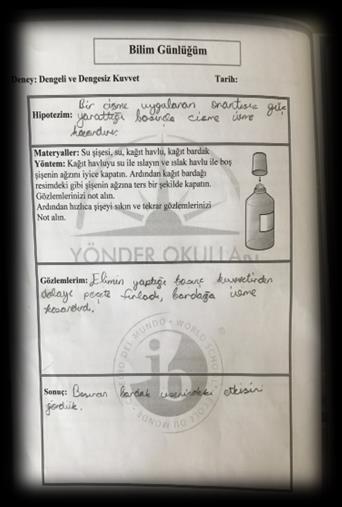 Bilim Günlüğüm
Deney: Dengeli ve Dengesiz Kuvvet Tarih:
Hipotezim: Bir cisme uygulanan orantısız güç
yarattığı basınçla cisme ivme
kazandırır.
Materyaller: Su şişesi, su, kağıt havlu, kağıt bardak
Yöntem: Kağıt havluyu su ile ıslayın ve ıslak havlu ile boş
şişenin ağzını iyice kapatın. Ardından kağıt bardağı
resimdeki gibi şişenin ağzına ters bir şekilde kapatın.
Gözlemlerinizi not alın.
Ardından hızlıca şişeyi sıkın ve tekrar gözlemlerinizi
Not alın.
YÖNDER OKULLARI
Gözlemlerim: Elimin yaptığı basınç kuvvetinden
dolayı peçete fırladı, bardağa ivme
kazandırdı.
WORLD SCHOOL
MONDO
ib
Sonuç: Basıncın bardak üzerindeki etkisini
gördük.